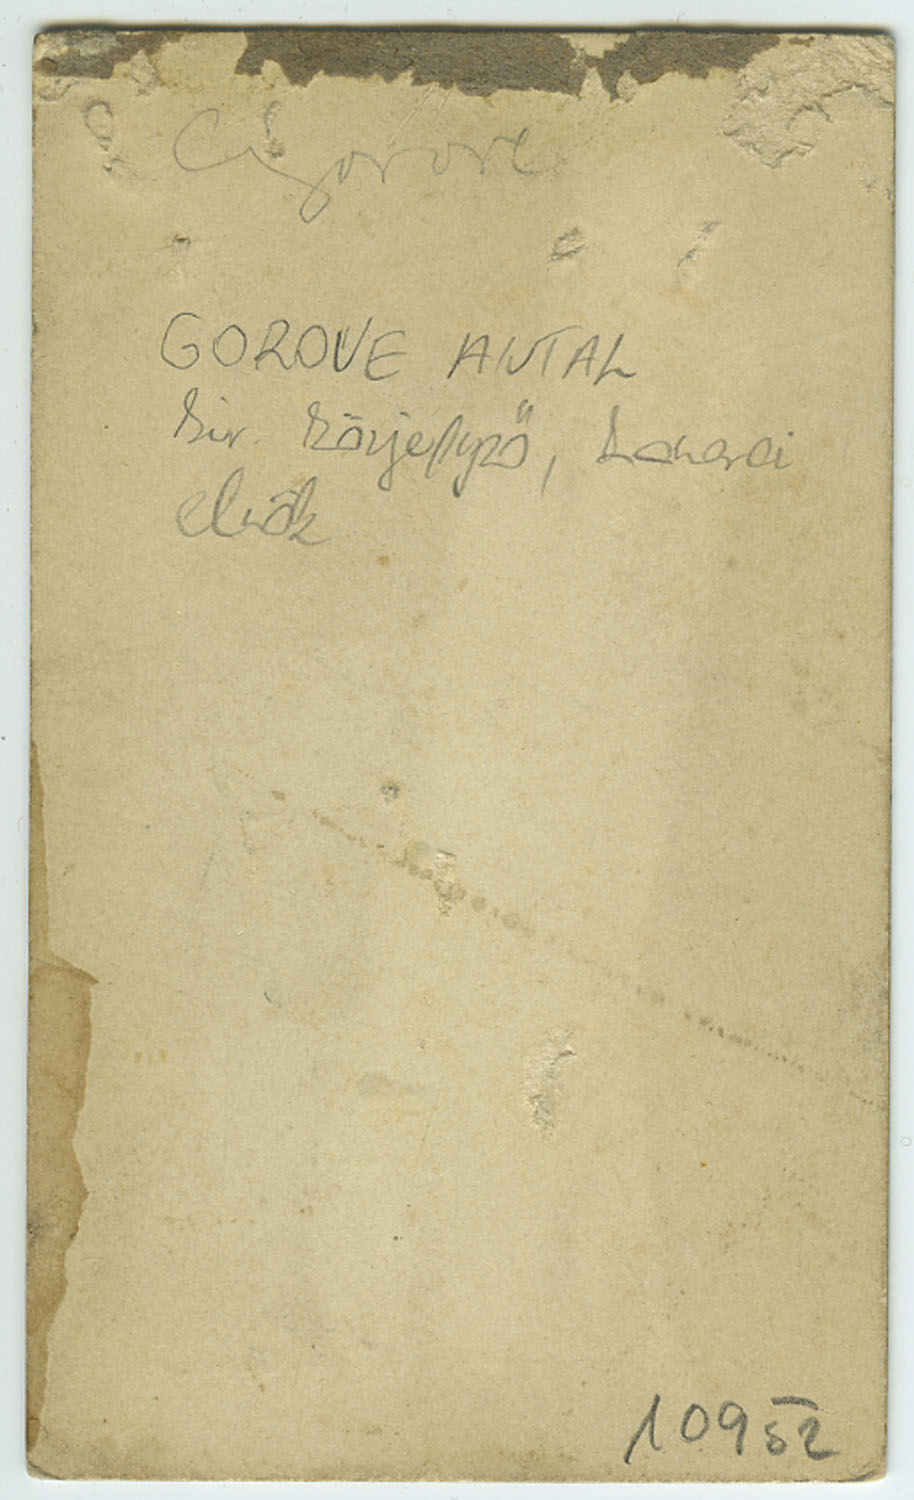 Gorove
GOROVE ANTAL
kir. közjegyző, kamarai
elnök
10952